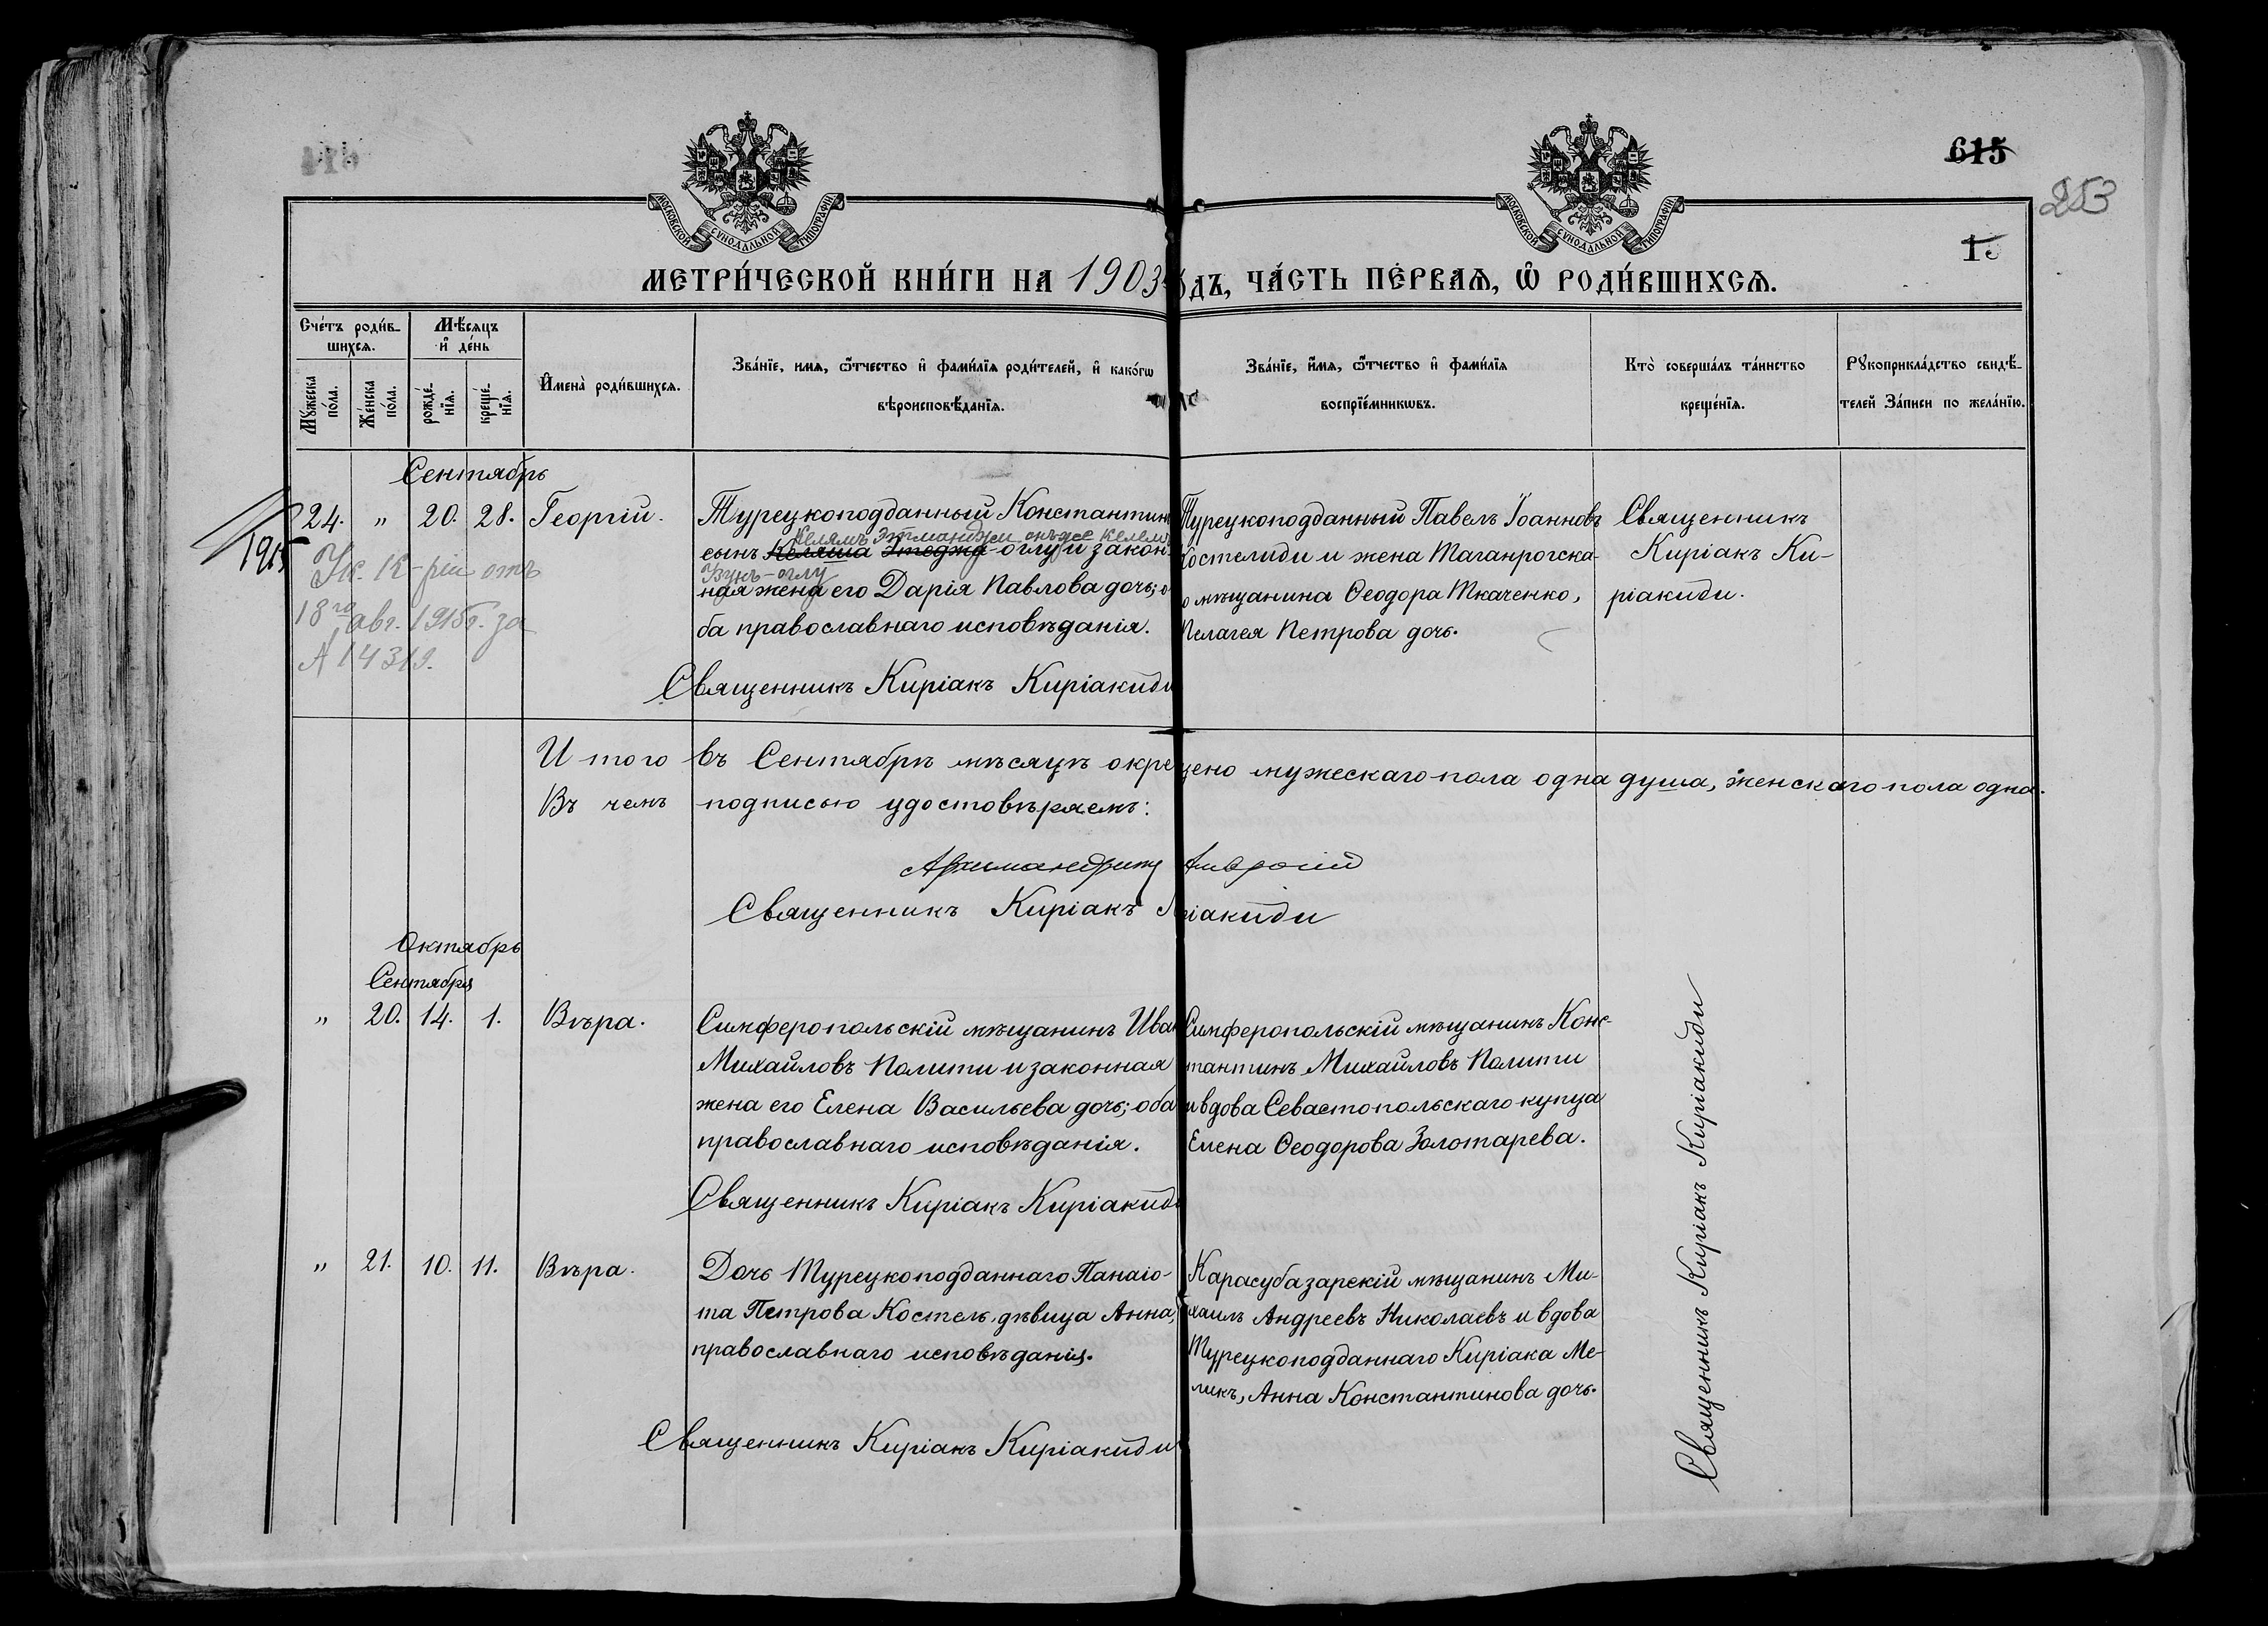 614
615
253
15
МОСКОВСКОЙ СѴНОДАЛЬНОЙ ТИПОГРАФІИ
МОСКОВСКОЙ СѴНОДАЛЬНОЙ ТИПОГРАФІИ
МЕТРИ́ЧЕСКОЙ КНИ́ГИ НА 1903 ГОДЪ, ЧА́СТЬ ПЕ́РВАЯ, Ѡ҆ РОДИ́ВШИХСЯ.
Сче́тъ роди́в-
шихся.
Мѣ́сяцъ
и҆ де́нь
Мꙋ́жеска по́ла.
Же́нска по́ла.
рожде́-
нїѧ.
креще́-
нїѧ.
И҆мена̀ роди́вшихся.
Зва́нїе, имя, ѻ҆́тчество и҆ фами́лїя роди́телей, и҆ како́гѡ
вѣроисповѣ́данїя.
Зва́нїе, и҆́мя, ѻ҆́тчество и҆ фами́лїя
воспрїе́мникѡвъ.
Кто̀ соверша́лъ та́инство
креще́нїя.
Рꙋкоприкла́дство свидѣ́-
телей За́писи по жела́нїю.
Сентябрь
24. " 20. 28. Георгій.
Турецкоподданный Константинъ
Келямъ Этманджи онъ же Келемъ
сынъ Келяша Этеджи-оглу и закон-
Узунъ-оглу
ная жена его Дарія Павлова дочь; о-
ба православнаго исповѣданія.
Священникъ Киріакъ Киріакиди
Турецкоподданный Павелъ Іоанновъ
Костелиди и жена Таганрогска-
о мѣщанина Ѳеодора Ткаченко,
Пелагея Петрова дочь.
Священникъ
Киріакъ Ки-
ріакиди.
1915
Ук. К-ріи отъ
18го авг. 1915г. за
№ 14319.
Итого въ Сентябрѣ мѣсяцѣ окрещено мужескаго пола одна душа, женскаго пола одна.
Въ чемъ подписью удостовѣряемъ:
Архимандритъ Амвросій
Священникъ Киріакъ Киріакиди
Октябрь
Сентября
" 20. 14. 1. Вѣра.
Симферопольскій мѣщанинъ Иванъ
Михайловъ Полити и законная
жена его Елена Васильева дочь; оба
православнаго исповѣданія.
Священникъ Киріакъ Киріакиди
Симферопольскій мѣщанинъ Конс-
тантинъ Михайловъ Полити
и вдова Севастопольскаго купца
Елена Ѳеодорова Золотарева.
" 21. 10. 11. Вѣра.
Дочь Турецкоподданнаго Панаіо-
та Петрова Костель, дѣвица Анна,
православнаго исповѣданія.
Священникъ Киріакъ Киріакиди
Карасубазарскій мѣщанинъ Ми-
хаилъ Андреевъ Николаевъ и вдова
Турецкоподданнаго Киріака Ме-
ликъ, Анна Константинова дочь.
Священникъ Киріакъ Киріакиди